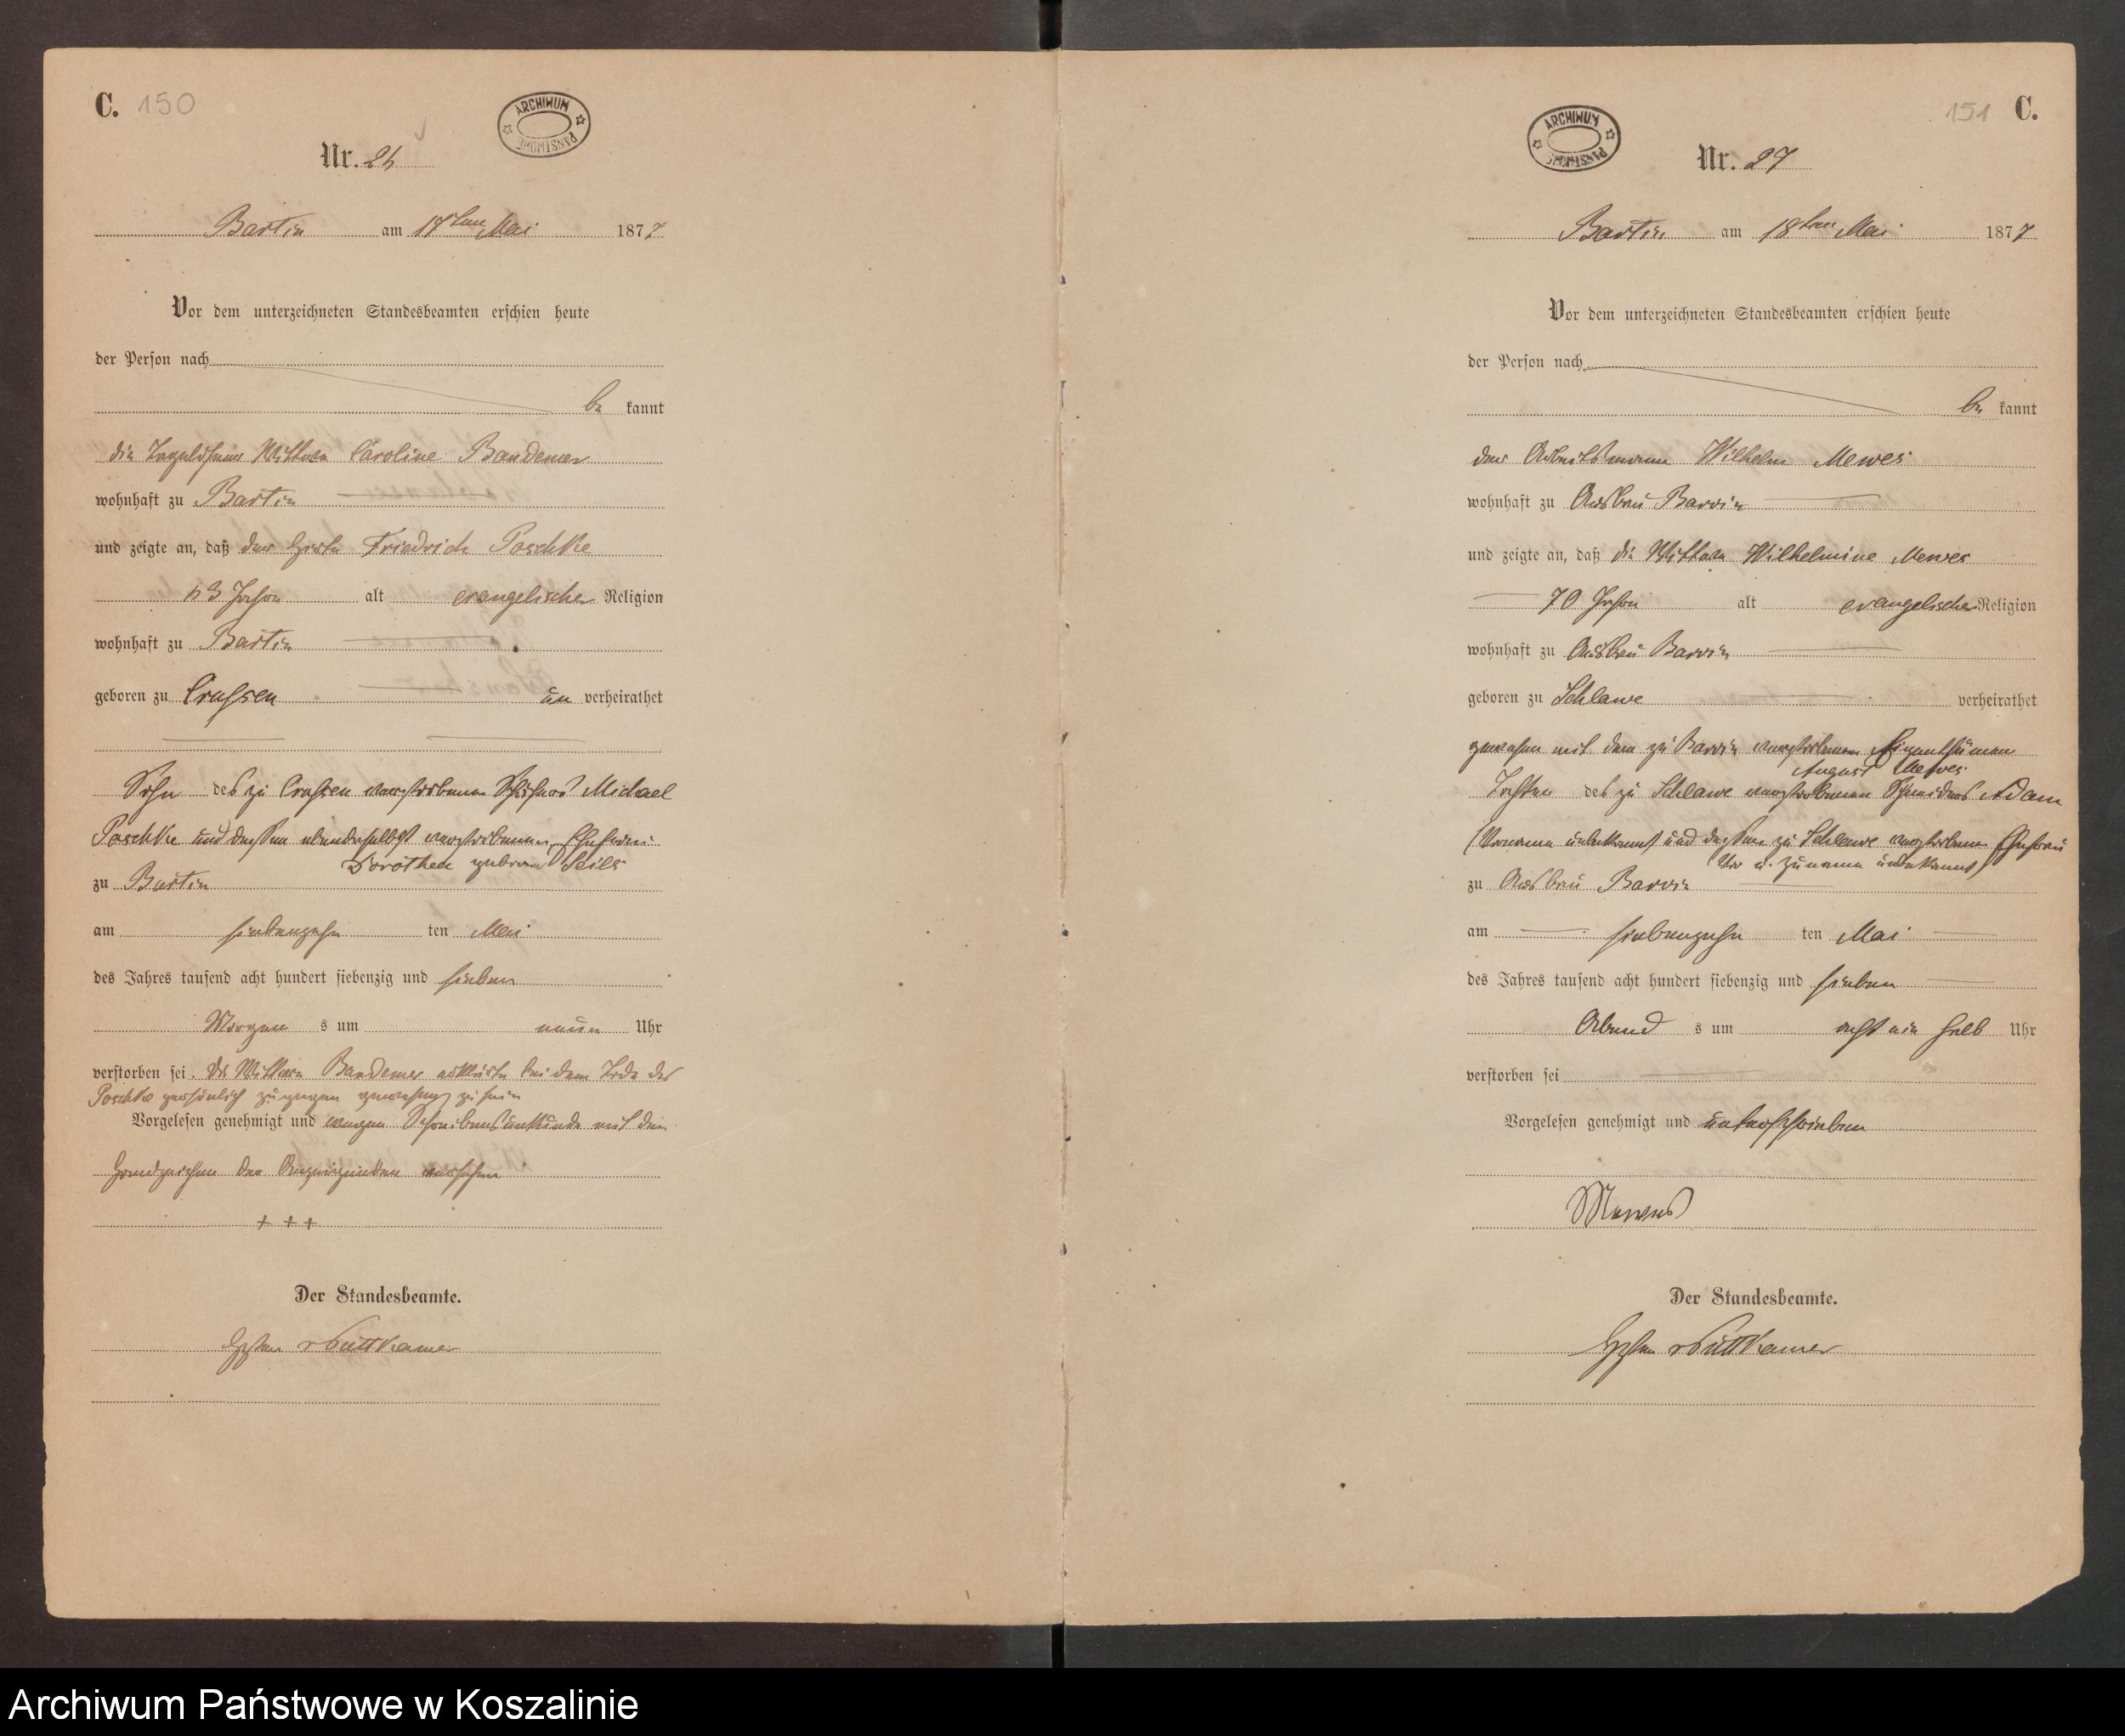 C. 150
ARCHIWUM PAŃSTWOWE
Nr. 26
Bartin am 17ten Mai 1877
Vor dem unterzeichneten Standesbeamten erschien heute
der Person nach
be kannt
die Tagelöhner Wittwe Caroline Bandemer
wohnhaft zu Bartin
und zeigte an, daß der Hirte Friedrich Poschke
63 Jahre alt evangelischer Religion
wohnhaft zu Bartin
geboren zu Crussen un verheirathet
Sohn des zu Crussen verstorbenen Schäfers Michael
Poschke und dessen ebendaselbst verstorbenen Ehefrau
Dorothea geboren Seils
zu Bartin
am siebenzehn ten Mai
des Jahres tausend acht hundert siebenzig und sieben
Morgen s um neun Uhr
verstorben sei. Die Wittwe Bandemer erklärte bei dem Tode des
Poschke persönlich zugegen gewesen zu sein
Vorgelesen genehmigt und wegen Schreibensunkunde mit den
Handzeichen der Anzeigenden versehen
+ + +
Der Standesbeamte.
v Puttkamer
151 C.
ARCHIWUM PAŃSTWOWE
Nr. 27
Bartin am 18ten Mai 1877
Vor dem unterzeichneten Standesbeamten erschien heute
der Person nach
be kannt
der Arbeitsmann Wilhelm Mewes
wohnhaft zu Ausbau Barvin
und zeigte an, daß die Wittwe Wilhelmine Mewes
70 Jahre alt evangelischer Religion
wohnhaft zu Ausbau Barvin
geboren zu Schlawe verheirathet
gewesen mit dem zu Barvin verstorbenen Eigenthümer
August Mewes
Tochter des zu Schlawe verstorbenen Schneiders Adam
(Vorname unbekannt) und dessen zu Schlawe verstorbenen Ehefrau
Vor u. Zuname unbekannt)
zu Ausbau Barvin
am siebenzehn ten Mai
des Jahres tausend acht hundert siebenzig und sieben
Abend s um acht ein halb Uhr
verstorben sei
Vorgelesen genehmigt und unterschrieben
Mewes
Der Standesbeamte.
v Puttkamer
Archiwum Państwowe w Koszalinie